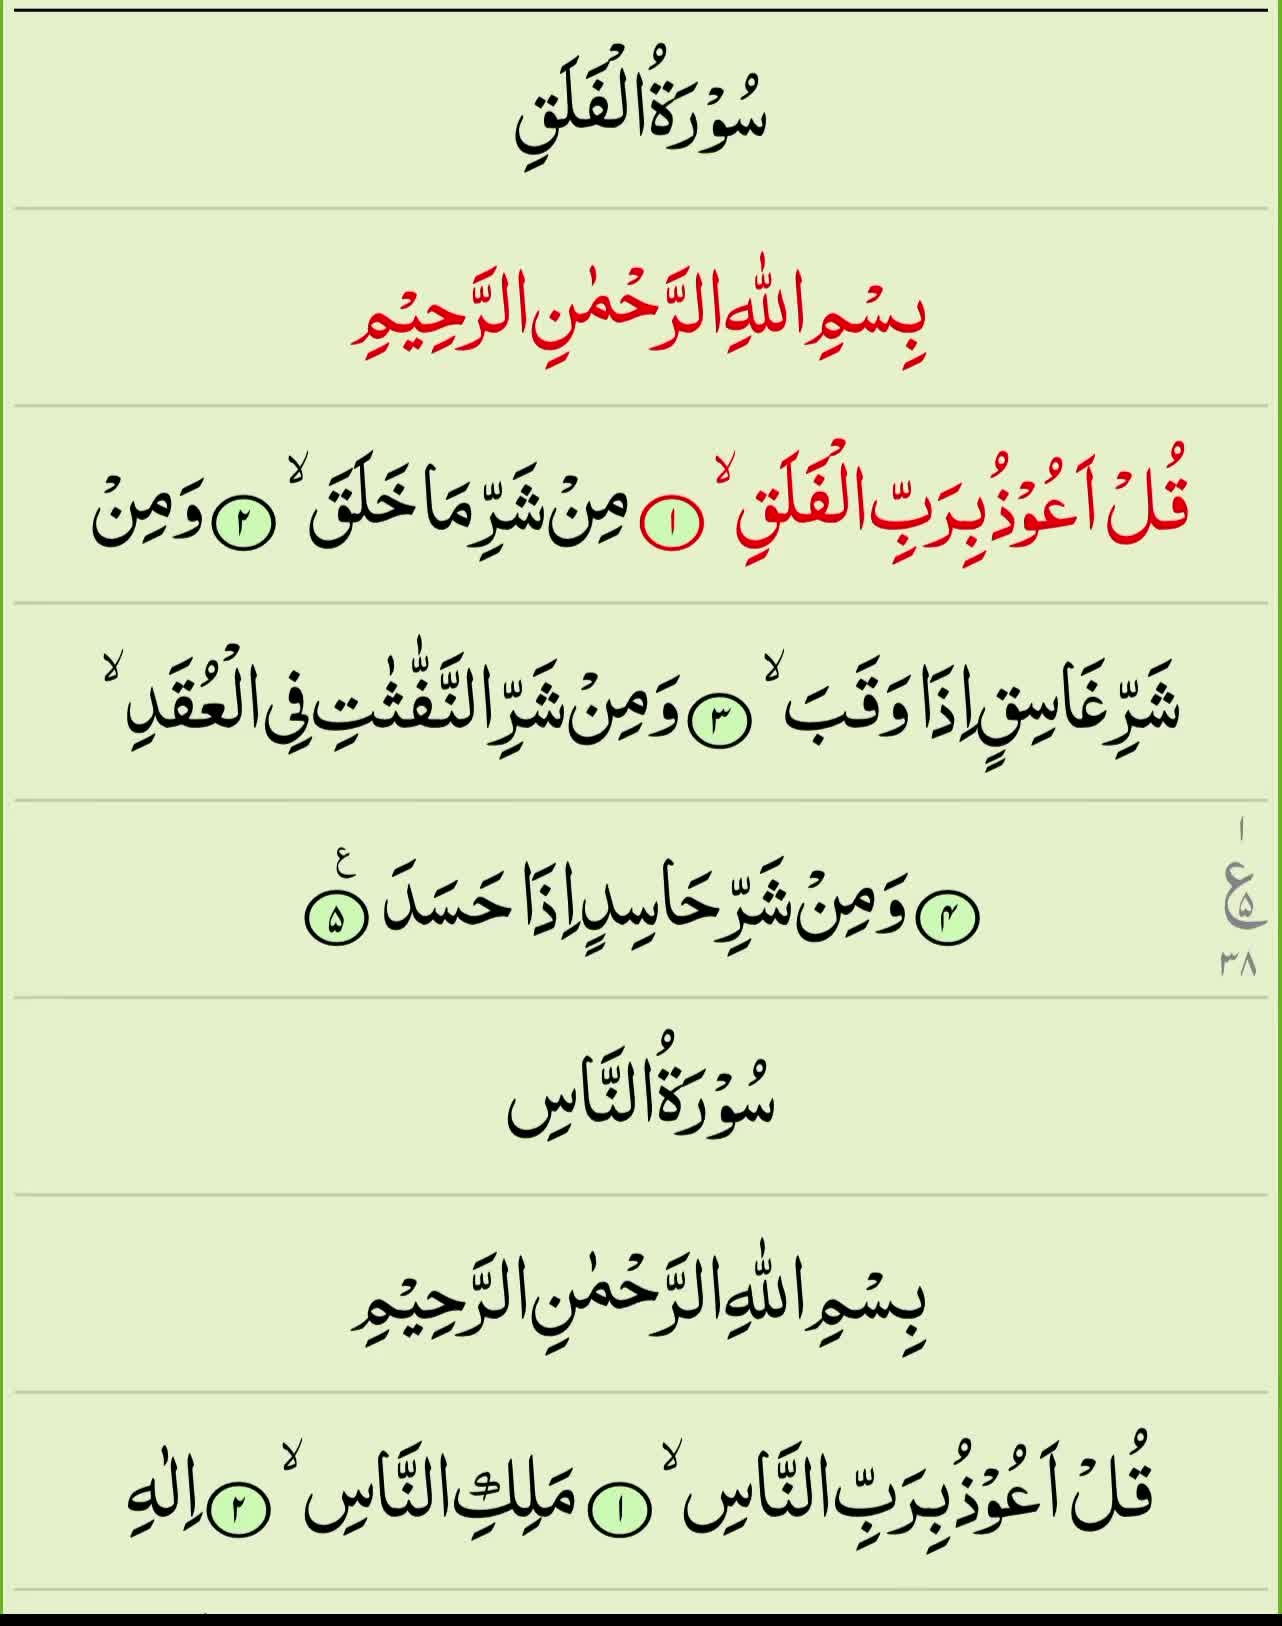 سُوْرَةُ الْفَلَقِ
بِسْمِ اللّٰهِ الرَّحْمٰنِ الرَّحِيْمِ
قُلْ اَعُوْذُ بِرَبِّ الْفَلَقِ ۙ ۱ مِنْ شَرِّ مَا خَلَقَ ۙ ۲ وَ مِنْ
شَرِّ غَاسِقٍ اِذَا وَقَبَ ۙ ۳ وَ مِنْ شَرِّ النَّفّٰثٰتِ فِی الْعُقَدِ ۙ
۴ وَ مِنْ شَرِّ حَاسِدٍ اِذَا حَسَدَ ۵ ع
۱ ع ۵ ۳۸
سُوْرَةُ النَّاسِ
بِسْمِ اللّٰهِ الرَّحْمٰنِ الرَّحِيْمِ
قُلْ اَعُوْذُ بِرَبِّ النَّاسِ ۙ ۱ مَلِكِ النَّاسِ ۙ ۲ اِلٰهِ